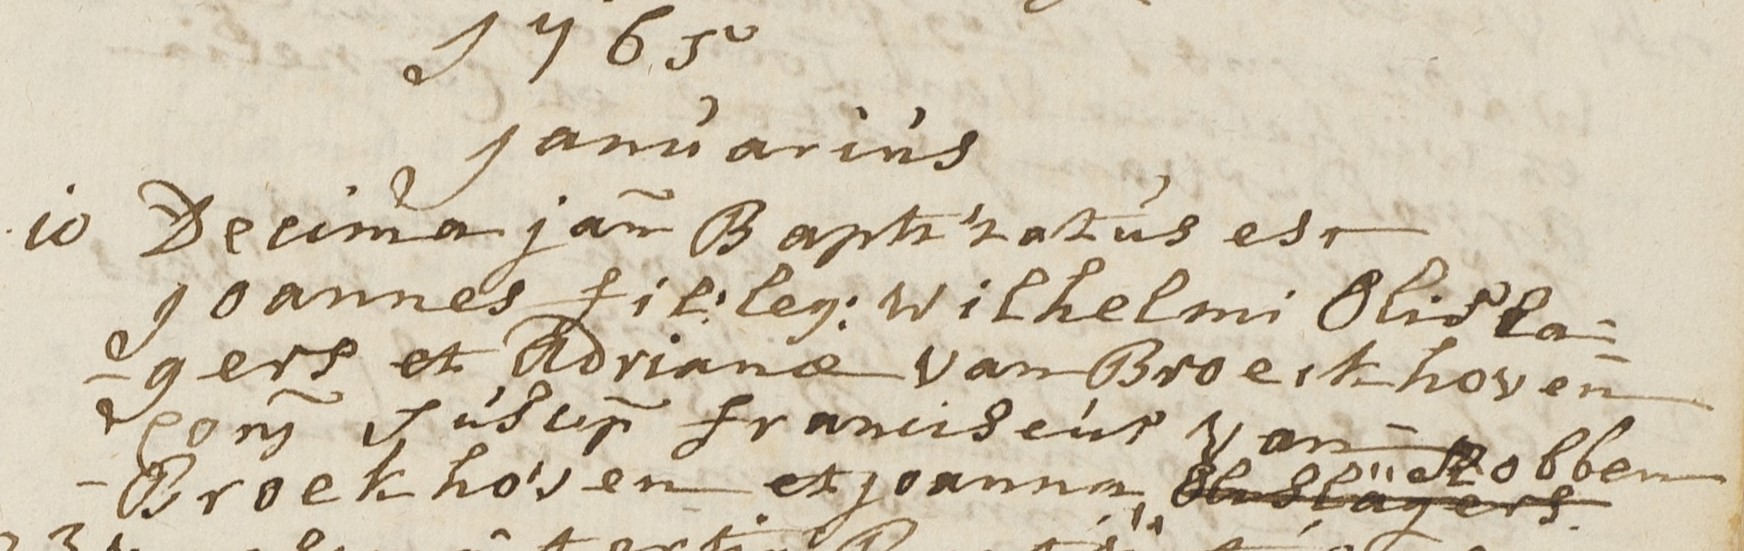 1765
Januarius
10 Decima jan Baptizatus est
Joannes fil: leg: Wilhelmi Olisla-
-gers et Adrianæ van Broeckhoven
conj Susup franciscus van
Robben
-Broekhoven et joanna Olislagers.